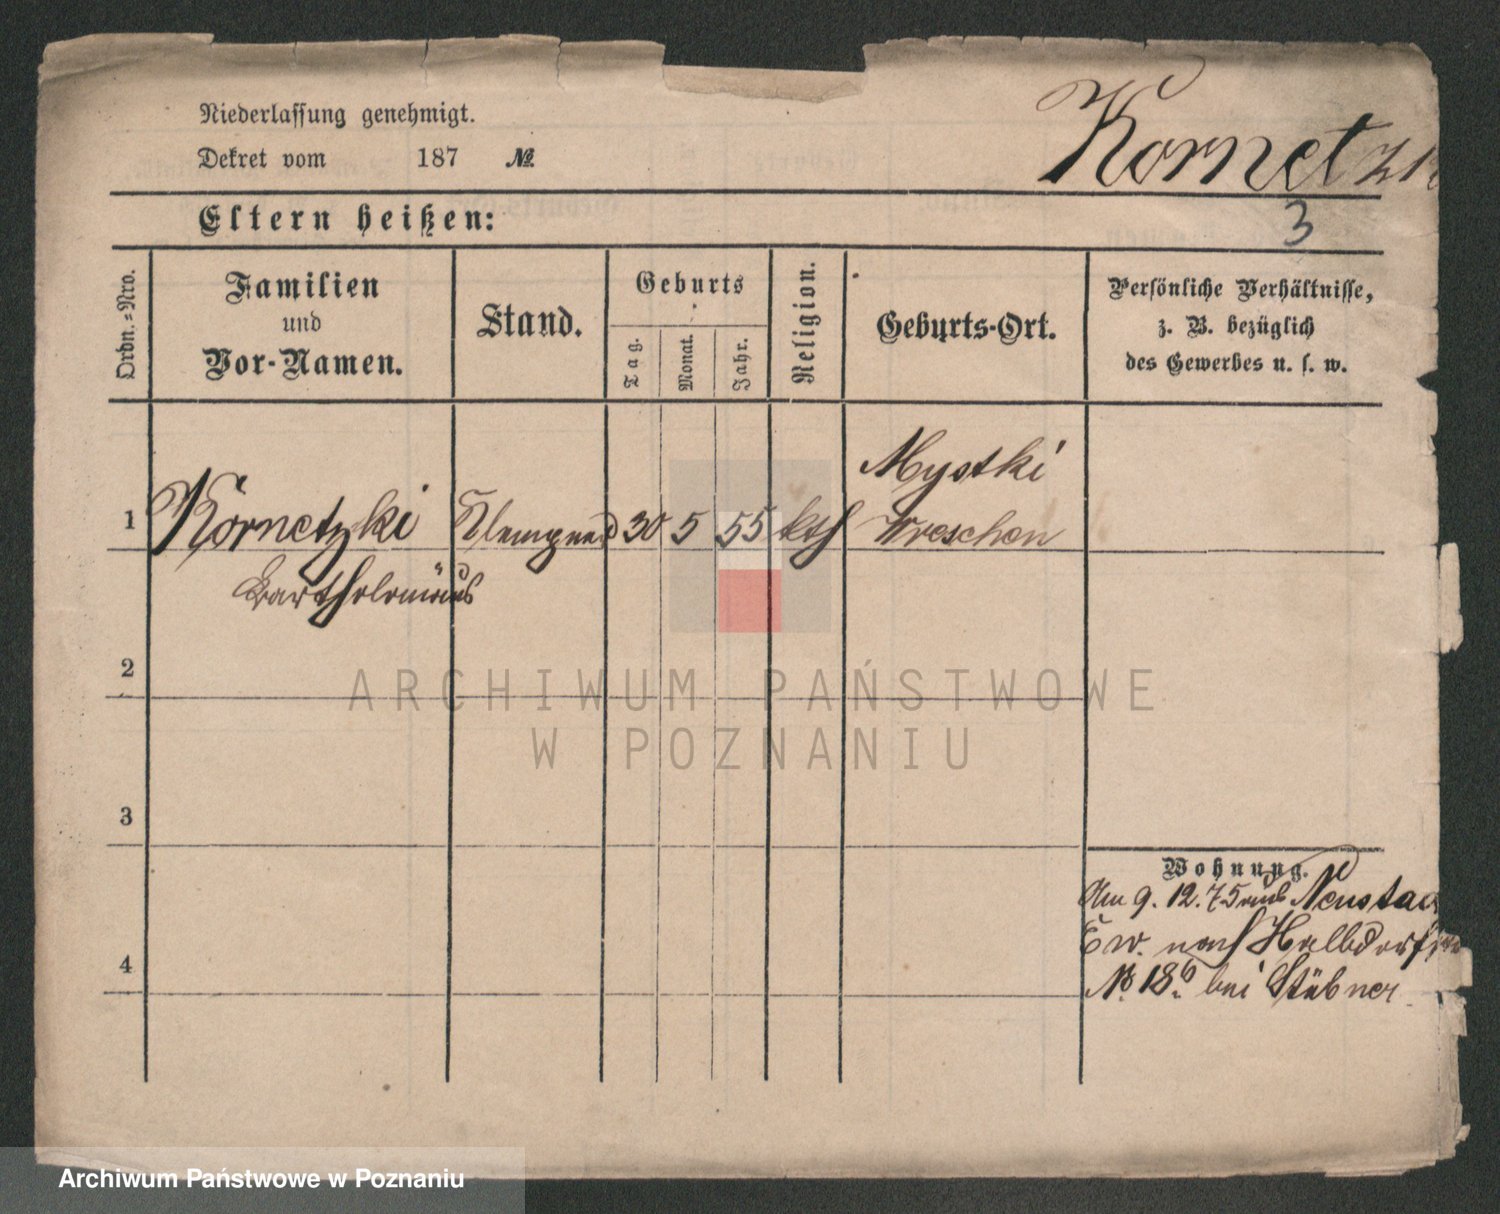 Niederlassung genehmigt.
Dekret vom 187 №
Kornetzk
Eltern heißen:
3
Ordn.=Nro.
Familien
und
Vor-Namen.
Stand.
Geburts
Tag.
Monat.
Jahr.
Religion.
Geburts-Ort.
Persönliche Verhältnisse,
z. B. bezüglich
des Gewerbes u. s. w.
Mystki
1 Kornetzki Klempner 30 5 55 kth Wreschen
Bartholomäus
2
3
Wohnung.
Am 9. 12. 75 Neustad
6 W. nach Halbdorfstr
4
№ 18b. bei Stübner
ARCHIWUM PAŃSTWOWE
W POZNANIU
Archiwum Państwowe w Poznaniu